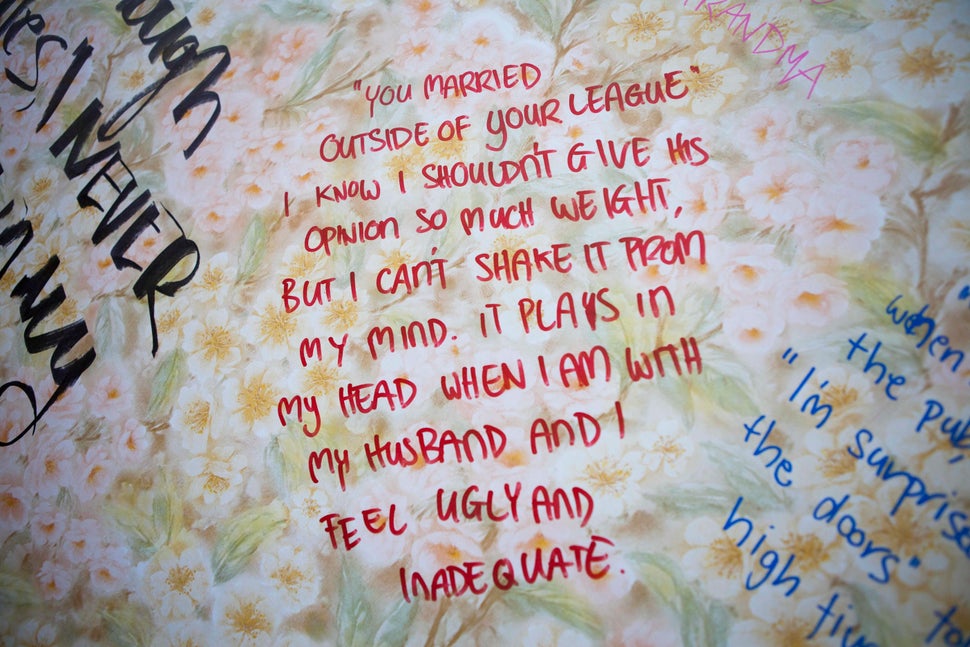 "YOU MARRIED
OUTSIDE OF YOUR LEAGUE"
I KNOW I SHOULDN'T GIVE HIS
OPINION SO MUCH WEIGHT,
BUT I CAN'T SHAKE IT FROM
MY MIND. IT PLAYS IN
MY HEAD WHEN I AM WITH
MY HUSBAND AND I
FEEL UGLY AND
INADEQUATE.
GRANDMA
I NEVER
when
the pub,
"I'm surprise
the doors"
high